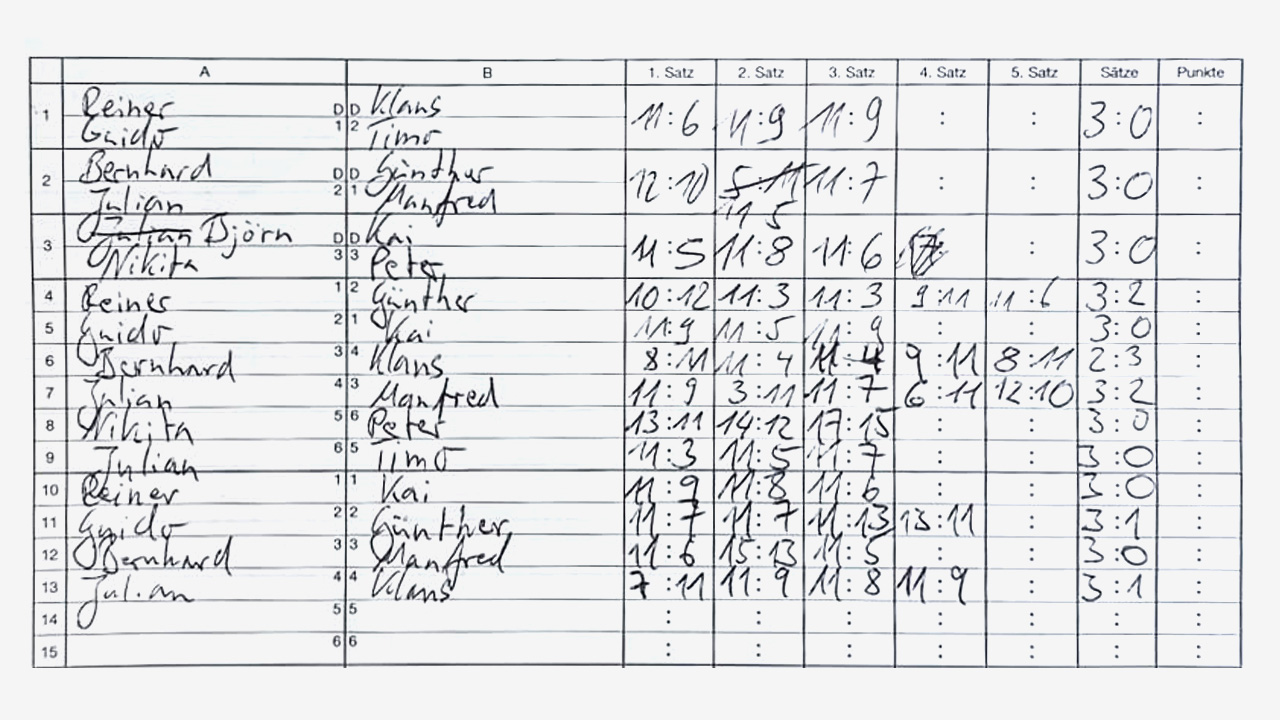 A B 1. Satz 2. Satz 3. Satz 4. Satz 5. Satz Sätze Punkte
1 Reiner D D Klaus 11:6 11:9 11:9 : : 3:0 :
Guido 1 2 Timo
2 Bernhard D D Günther 12:10 5:11 11:7 : : 3:0 :
Julian 2 1 Manfred 11 5
3 Julian Björn D D Kai 11:5 11:8 11:6 : 3:0 :
Nikita 3 3 Peter
4 Reiner 1 2 Günther 10:12 11:3 11:3 9:11 11:6 3:2 :
5 Guido 2 1 Kai 11:9 11:5 11:9 : : 3:0 :
6 Bernhard 3 4 Klaus 8:11 11:4 11:4 9:11 8:11 2:3 :
7 Julian 4 3 Manfred 11:9 3:11 11:7 6:11 12:10 3:2 :
8 Nikita 5 6 Peter 13:11 14:12 17:15 : : 3:0 :
9 Julian 6 5 Timo 11:3 11:5 11:7 : : 3:0 :
10 Reiner 1 1 Kai 11:9 11:8 11:6 : : 3:0 :
11 Guido 2 2 Günther 11:7 11:7 11:13 13:11 : 3:1 :
12 Bernhard 3 3 Manfred 11:6 15:13 11:5 : : 3:0 :
13 Julian 4 4 Klaus 7:11 11:9 11:8 11:9 : 3:1 :
14 5 5 : : : : : : :
15 6 6 : : : : : : :